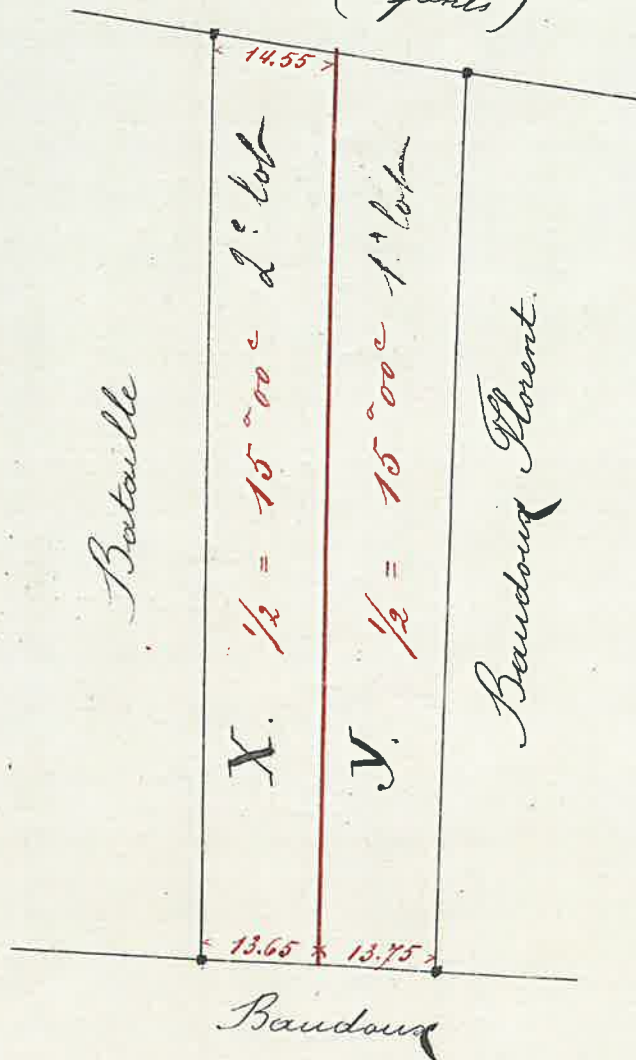 14.55
Bataille
X. 1/2 = 15ᵃ00ᶜ 2ᵉ lot
Y. 1/2 = 15ᵃ00ᶜ 1ᵉʳ lot
Baudoux Florent.
13.65
13.75
Baudoux